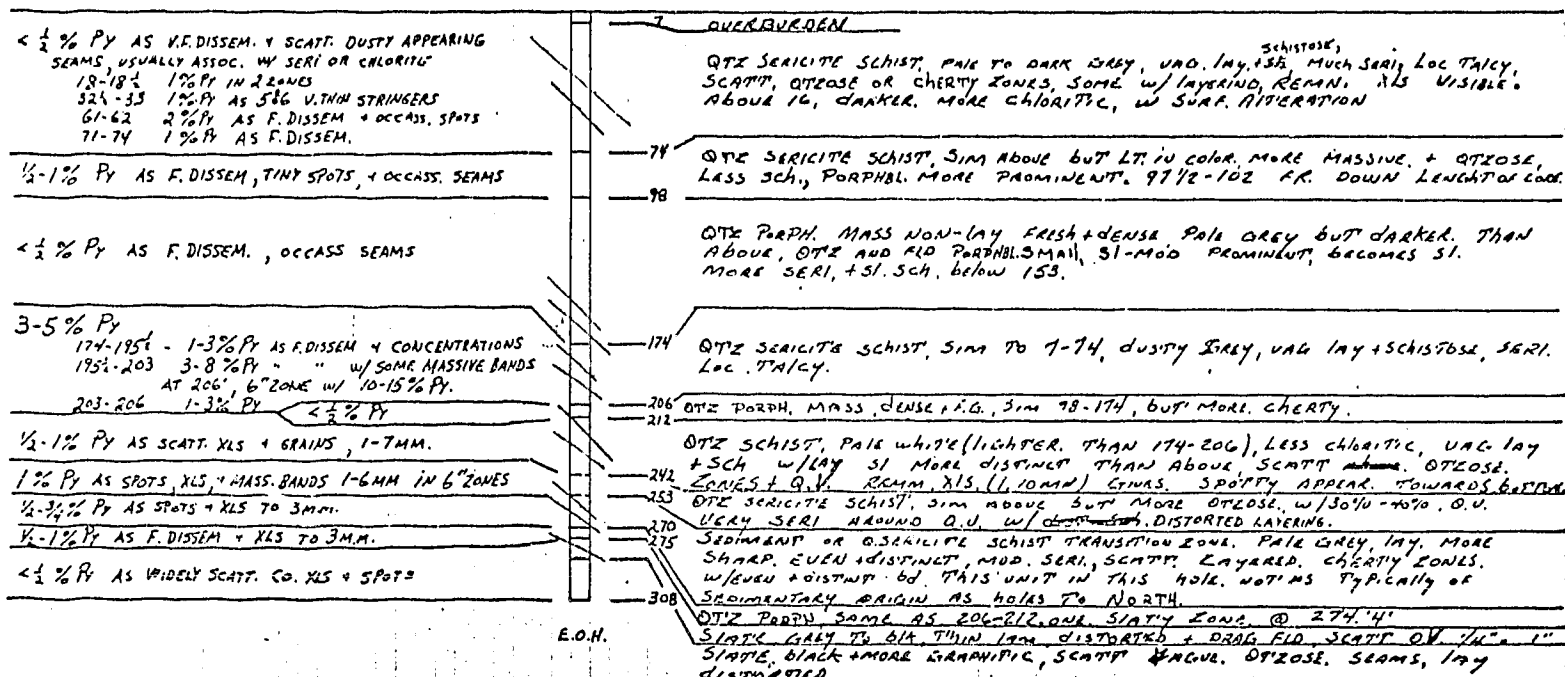 < ½ % PY AS V.F. DISSEM. + SCATT. DUSTY APPEARING
SEAMS, USUALLY ASSOC. W/ SERI OR CHLORITE
18-18½ 1% PY IN 2 ZONES
32½-33 1% PY AS 5&6 V.THIN STRINGERS
61-62 2% PY AS F. DISSEM + OCCASS. SPOTS
71-74 1% PY AS F. DISSEM.
½-1% PY AS F. DISSEM, TINY SPOTS, + OCCASS. SEAMS
< ½ % PY AS F. DISSEM., OCCASS SEAMS
3-5% PY
174-195½ - 1-3% PY AS F. DISSEM + CONCENTRATIONS
195½-203 3-8% PY " " W/ SOME MASSIVE BANDS
AT 206', 6" ZONE W/ 10-15% PY.
203-206 1-3% PY < ½ % PY
½-1% PY AS SCATT. XLS + GRAINS, 1-7MM.
1% PY AS SPOTS, XLS, + MASS. BANDS 1-6MM IN 6" ZONES
½-¾% PY AS SPOTS + XLS TO 3MM.
½-1% PY AS F. DISSEM + XLS TO 3M.M.
< ½ % PY AS WIDELY SCATT. CO. XLS + SPOTS
7
74
98
174
206
212
242
253
270
275
308
E.O.H.
OVERBURDEN
QTZ SERICITE SCHIST, PALE TO DARK GREY, VAG. LAY. + SCHISTOSE, MUCH SERI, LOC TALCY,
SCATT, QTZOSE OR CHERTY ZONES, SOME W/ LAYERING, REMN. XLS VISIBLE.
ABOVE 16, DARKER. MORE CHLORITIC, W SURF. ALTERATION
QTZ SERICITE SCHIST, SIM ABOVE BUT LT. IN COLOR, MORE MASSIVE, + QTZOSE,
LESS SCH., PORPHBL. MORE PROMINENT. 97½-102 FR. DOWN LENGHT OF CORE
QTZ PORPH. MASS NON-LAY FRESH + DENSE PALE GREY BUT DARKER. THAN
ABOVE, QTZ AND FLD PORPHBL. SMALL, SL-MOD PROMINENT, BECOMES SL.
MORE SERI, + SL. SCH. BELOW 153.
QTZ SERICITE SCHIST, SIM TO 7-74, DUSTY GREY, VAG LAY + SCHISTOSE, SERI.
LOC. TALCY.
QTZ PORPH. MASS, DENSE + F.G., SIM 98-174, BUT MORE. CHERTY.
QTZ SCHIST, PALE WHITE (LIGHTER. THAN 174-206), LESS CHLORITIC, VAG LAY
+ SCH W/LAY SL MORE DISTINCT THAN ABOVE, SCATT QTZOSE.
ZONES + Q.V. REMN. XLS, (1,10MM) SPOTTY APPEAR. TOWARDS BOTTOM
QTZ SERICITE SCHIST, SIM ABOVE BUT MORE QTZOSE, W/30%-40% Q.V.
VERY SERI AROUND Q.V. W/ DISTORTED LAYERING.
SEDIMENT OR Q.SERICITE SCHIST TRANSITION ZONE. PALE GREY, LAY. MORE
SHARP. EVEN + DISTINCT, MOD. SERI., SCATT. LAYERED. CHERTY ZONES.
W/EVEN + DISTINT bd. THIS UNIT IN THIS HOLE. NOT AS TYPICALLY OF
SEDIMENTARY ORIGIN AS HOLES TO NORTH.
QTZ PORPH, SAME AS 206-212. ONE. SLATY ZONE. @ 274.'4'
SLATE GREY TO BLK, THIN LAM DISTORTED + DRAG FLD, SCATT Q.V. ¼"- 1"
SLATE, BLACK + MORE GRAPHITIC, SCATT VAGUE. QTZOSE. SEAMS, LAY
DISTORTED